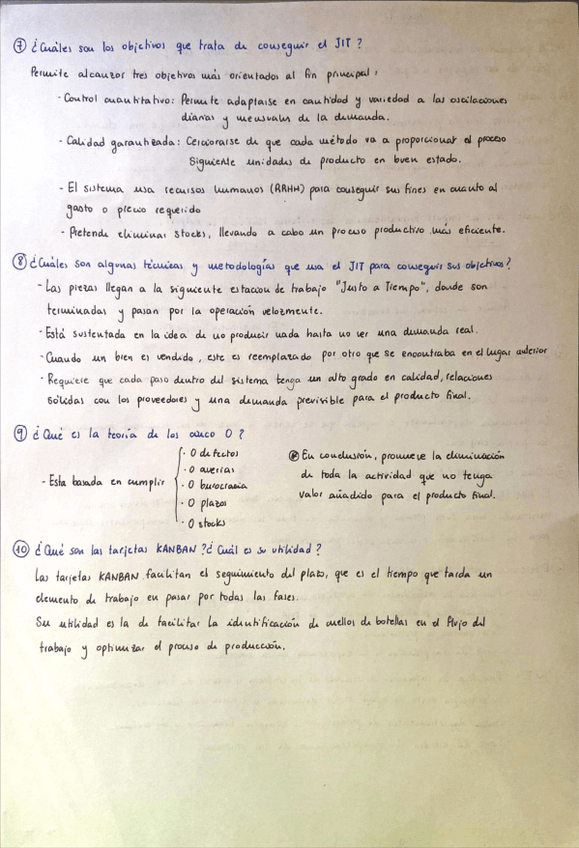 ⑦ ¿Cuáles son los objetivos que trata de conseguir el JIT?
Permite alcanzar tres objetivos más orientados al fin principal:
- Control cuantitativo: Permite adaptarse en cantidad y variedad a las oscilaciones
diarias y mensuales de la demanda.
- Calidad garantizada: Cerciorarse de que cada método va a proporcionar el proceso
siguiente unidades de producto en buen estado.
- El sistema usa recursos humanos (RRHH) para conseguir sus fines en cuanto al
gasto o precio requerido
- Pretende eliminar stocks, llevando a cabo un proceso productivo más eficiente.
⑧ ¿Cuáles son algunas técnicas y metodologías que usa el JIT para conseguir sus objetivos?
- Las piezas llegan a la siguiente estación de trabajo "Justo a Tiempo", donde son
terminadas y pasan por la operación velozmente.
- Está sustentada en la idea de no producir nada hasta no ver una demanda real.
- Cuando un bien es vendido, este es reemplazado por otro que se encontraba en el lugar anterior
- Requiere que cada paso dentro del sistema tenga un alto grado en calidad, relaciones
sólidas con los proveedores y una demanda previsible para el producto final.
⑨ ¿Qué es la teoría de los cinco 0?
- Esta basada en cumplir
· 0 defectos
· 0 averías
· 0 burocracia
· 0 plazos
· 0 stocks
En conclusión, promueve la eliminación
de toda la actividad que no tenga
valor añadido para el producto final.
⑩ ¿Qué son las tarjetas KANBAN? ¿Cuál es su utilidad?
Las tarjetas KANBAN facilitan el seguimiento del plazo, que es el tiempo que tarda un
elemento de trabajo en pasar por todas las fases.
Su utilidad es la de facilitar la identificación de cuellos de botellas en el flujo del
trabajo y optimizar el proceso de producción.